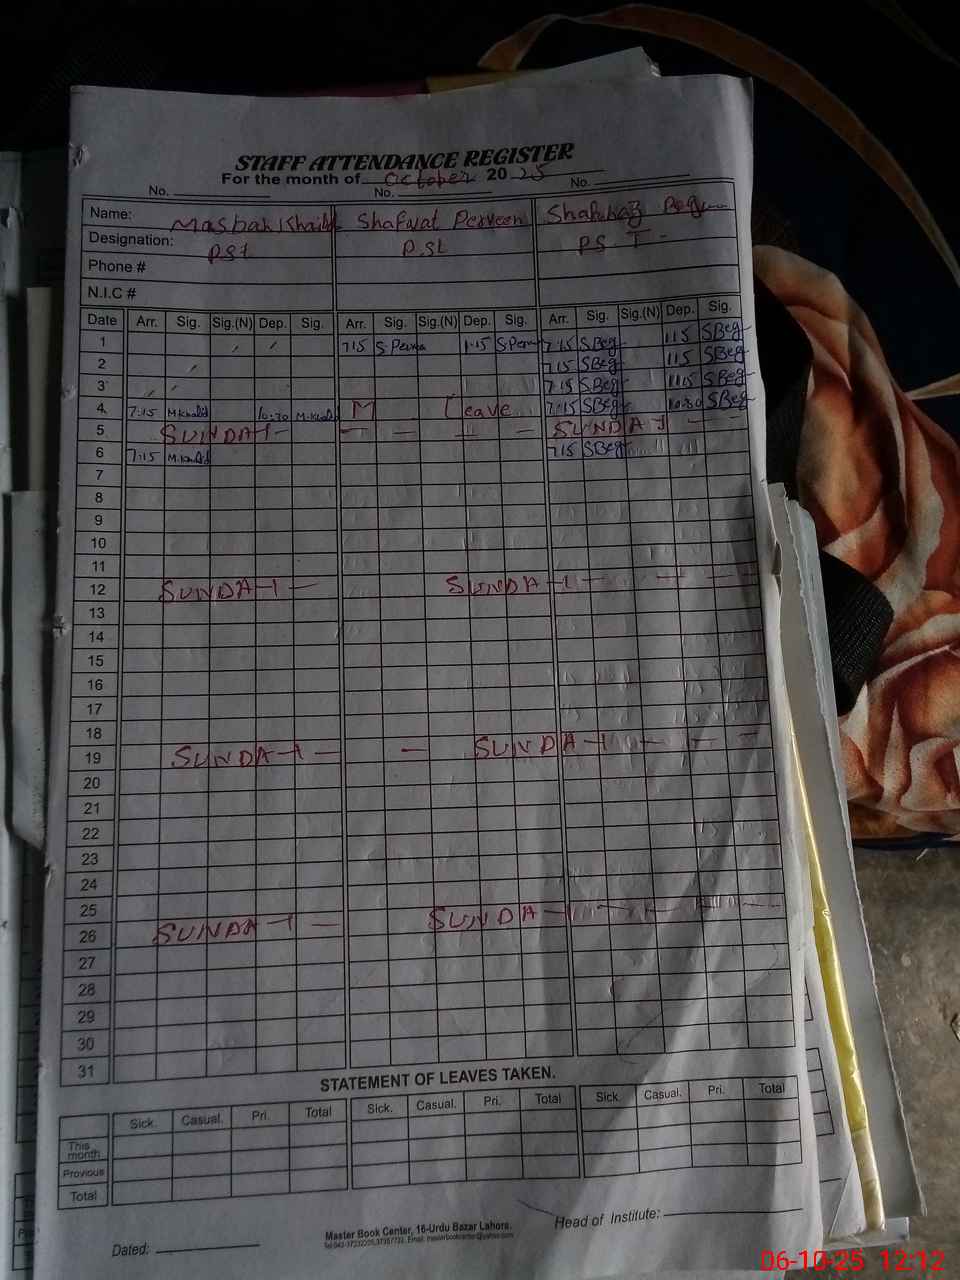 STAFF ATTENDANCE REGISTER
For the month of October 2025
No. No. No.
Name: Masbah Khalid Shafwat Perveen Shahnaz Begum
Designation: PSt P.St P.S.T.
Phone #
N.I.C #
Date Arr. Sig. Sig.(N) Dep. Sig. Arr. Sig. Sig.(N) Dep. Sig. Arr. Sig. Sig.(N) Dep. Sig.
1 715 S Perv 1:15 S Perv 7:15 SBeg 115 SBeg
2 715 SBeg 115 SBeg
3 7:15 SBeg 1115 SBeg
4 7:15 M.Khalid 10:30 M.Khalid M Leave 7:15 SBeg 10:30 SBeg
5 SUNDAY - - - - - SUNDAY - -
6 7:15 M.Khalid 715 SBeg
7
8
9
10
11
12 SUNDAY - SUNDAY - - - -
13
14
15
16
17
18
19 SUNDAY - - SUNDAY - - - -
20
21
22
23
24
25
26 SUNDAY - SUNDAY - - - -
27
28
29
30
31
STATEMENT OF LEAVES TAKEN.
Sick. Casual. Pri. Total Sick. Casual. Pri. Total Sick. Casual. Pri. Total
This month
Previous
Total
Master Book Center, 16-Urdu Bazar Lahore.
Dated: Head of Institute:
06-10-25 12:12